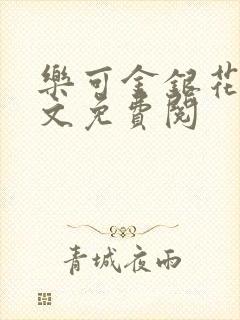 樂可金銀花
文免費閱
青城夜雨